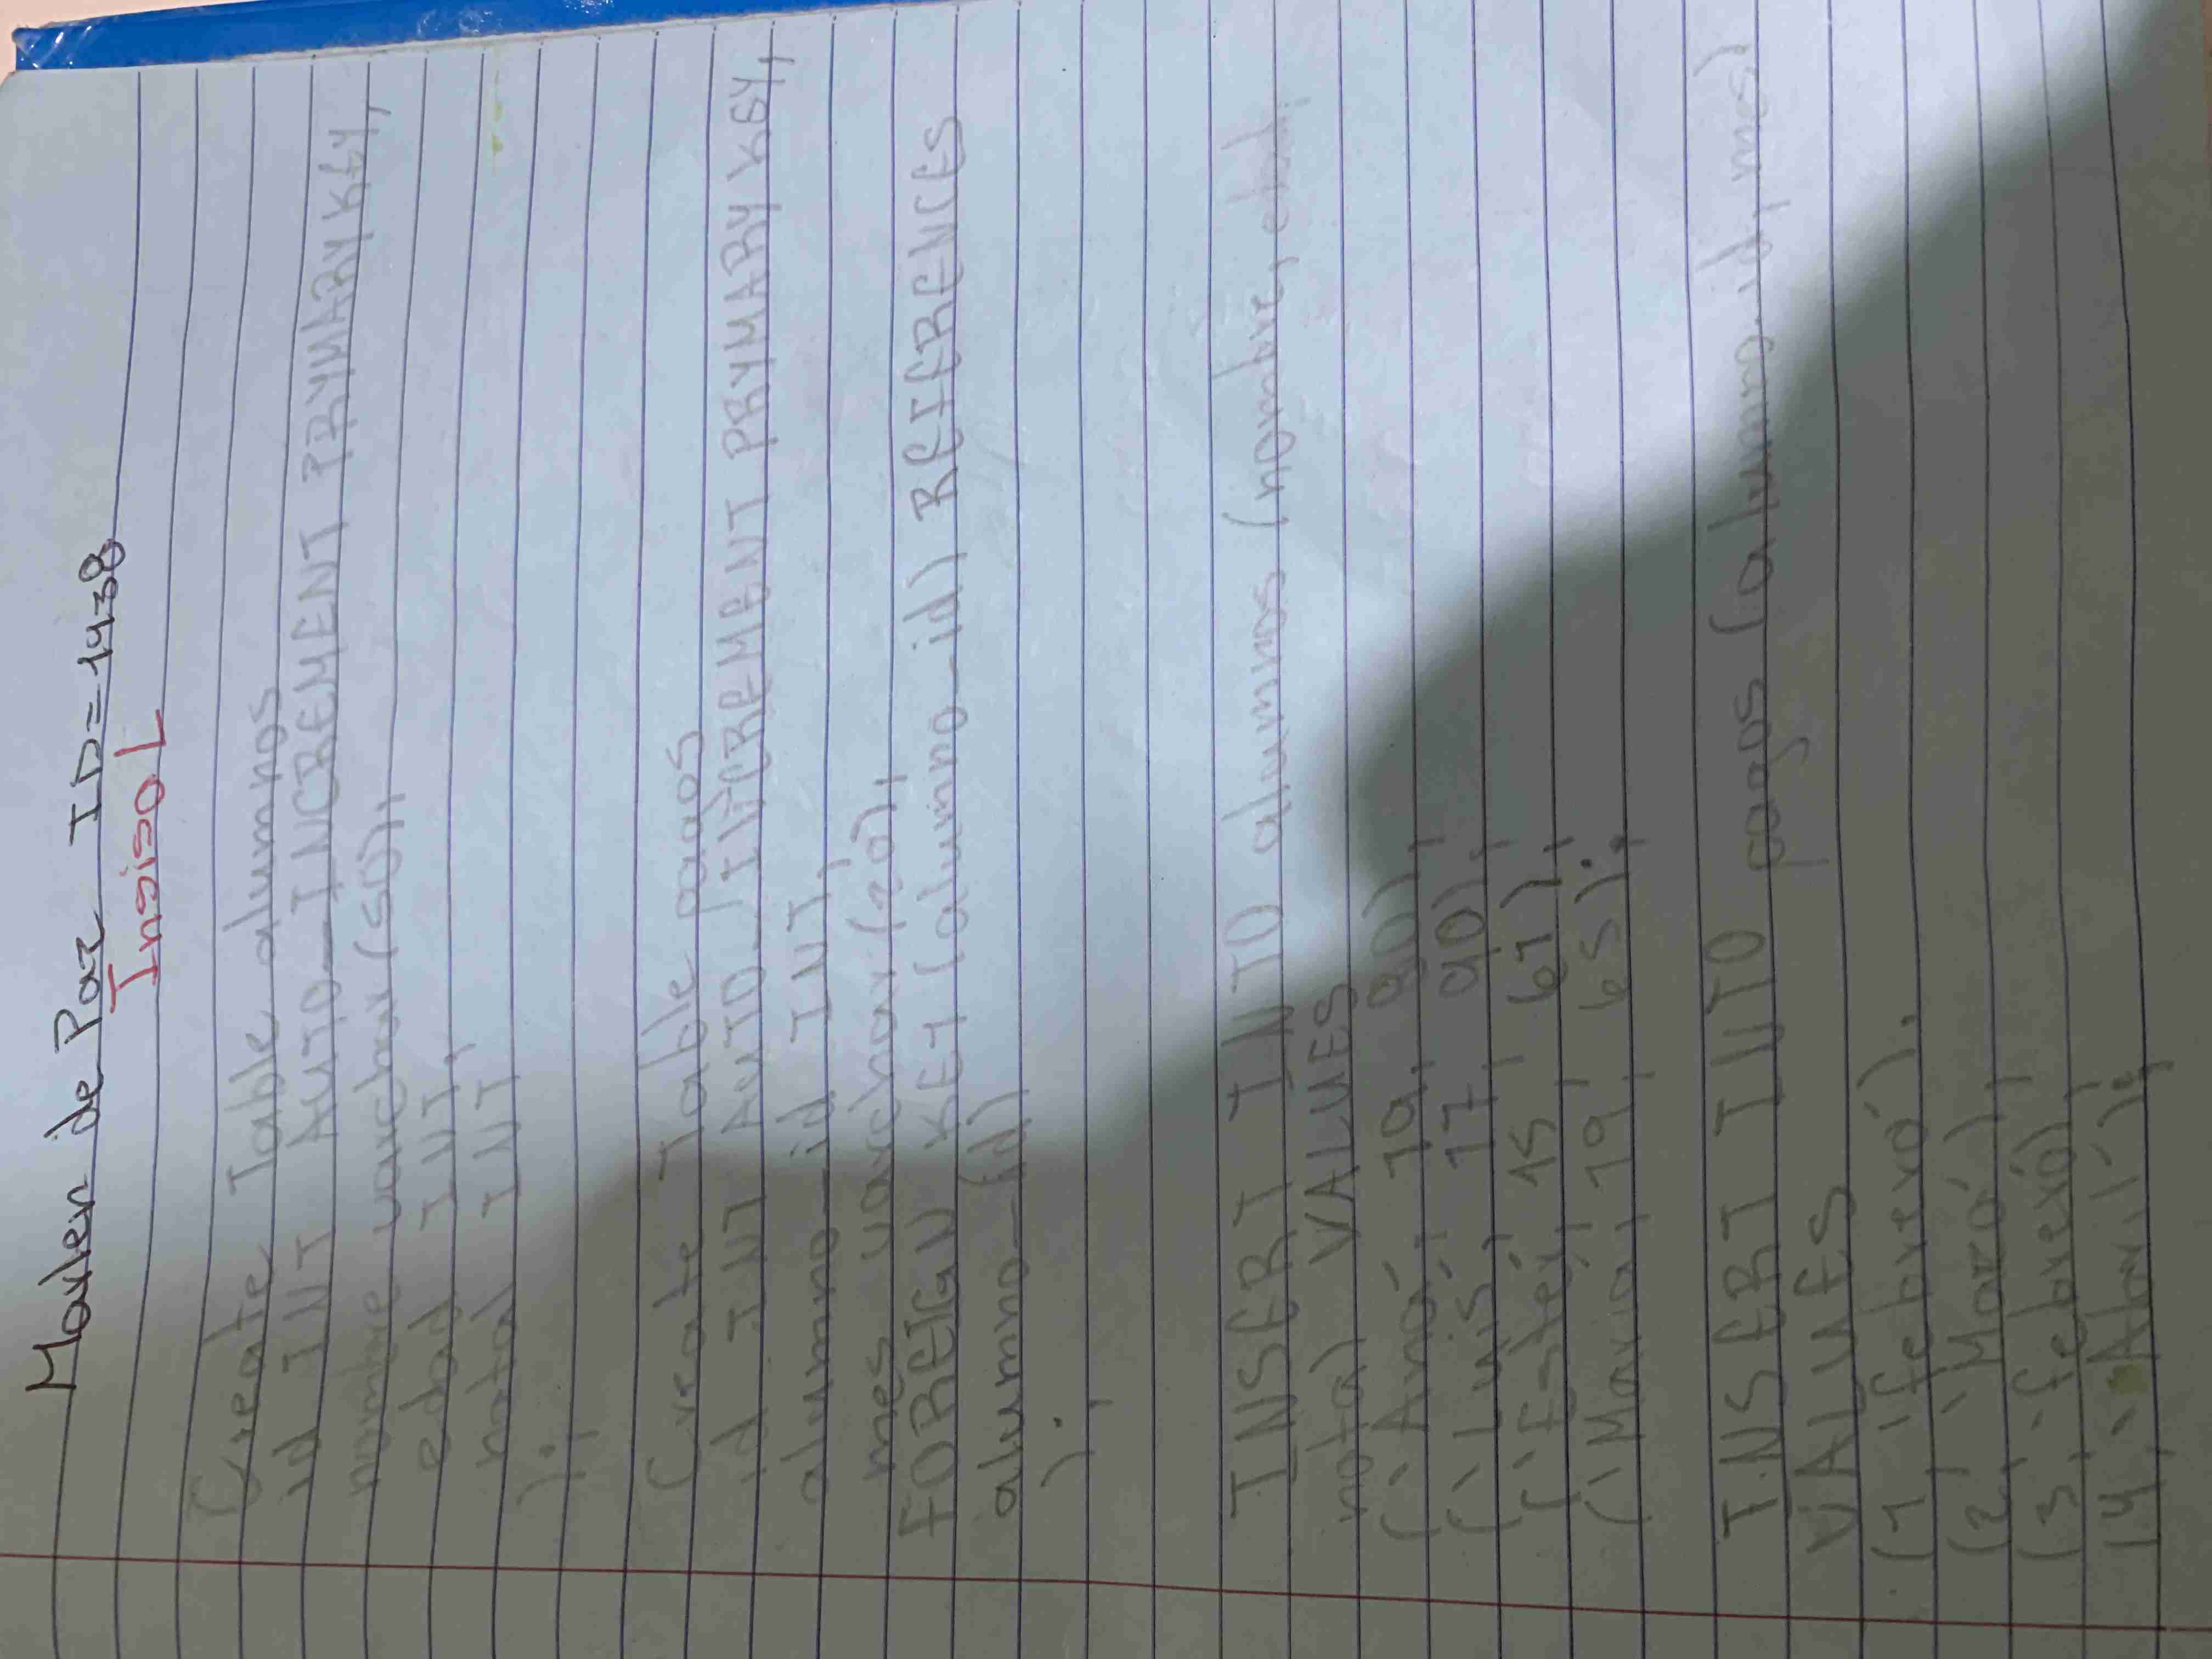 Marlen de Paz ID=1938
Insiso L
Create Table alumnos
id INT AUTO_INCREMENT PRYMARY KEY,
nombre varchar(50),
edad INT,
nota INT
);
Create Table pagos
id INT AUTO_INCREMENT PRYMARY KEY,
alumno_id INT,
mes varchar(20),
FOREIGN KEY (alumno_id) REFERENCES
alumno_(id)
);
INSERT INTO alumnos (nombre, edad,
nota) VALUES
('Ana', 19, 80),
('Luis', 17, 90),
('Ester', 15, 61),
('Maria, 19, 65);
INSERT INTO pagos (alumno_id, mes)
VALUES
(1, 'febrero'),
(2, 'Marzo'),
(3, 'febrero),
(4, 'Abril');